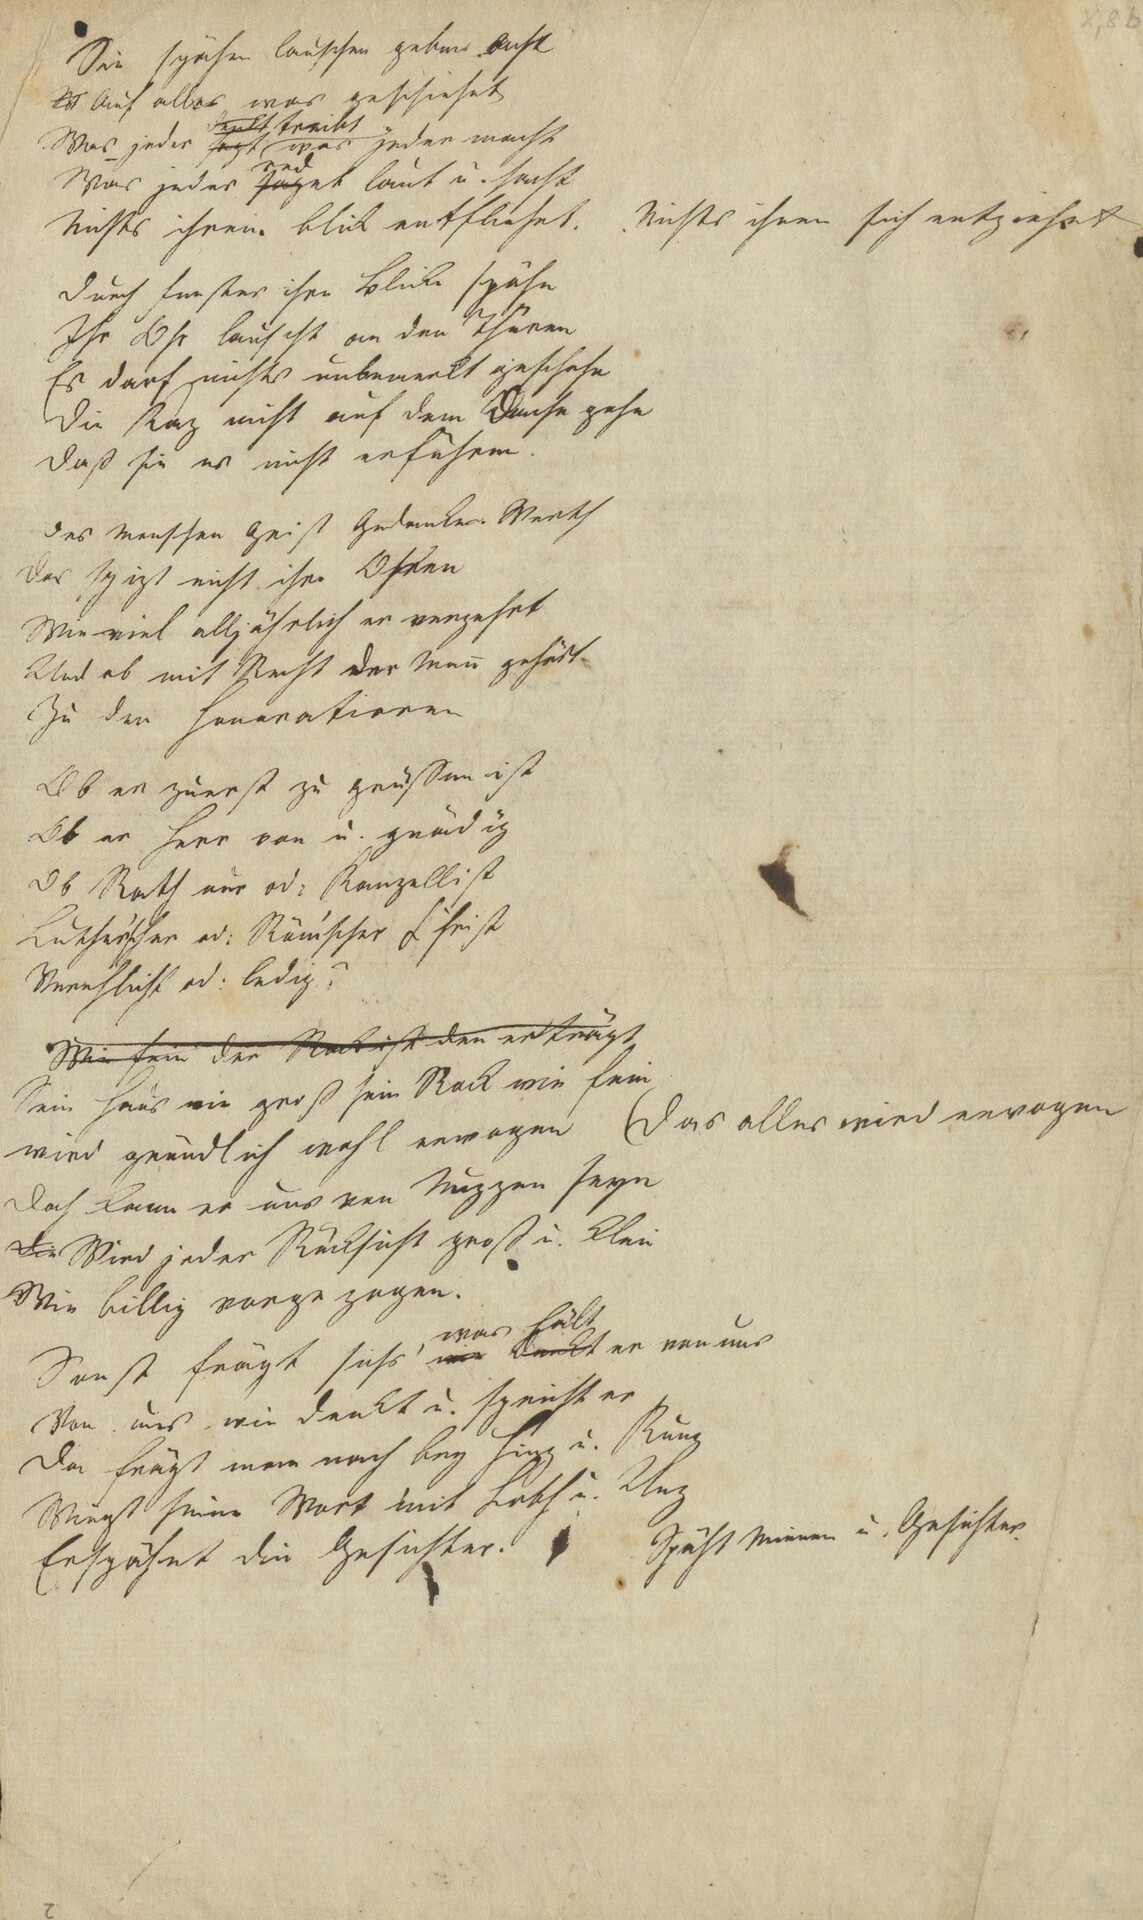 X, 8 b
Sie spähen lauschen geben Acht
Auf alles was geschiehet
denkt treibt
Was jeder sagt, was jeder macht
red
Was jeder saget laut u. sacht
Nichts ihrem blick entfliehet. Nichts ihnen sich entziehet
Durch fenster ihre Blicke spähn
Ihr Ohr lauscht an den Thüren
Es darf nichts unbemerkt geschehn
Die Kaz nicht auf dem Dache gehn
Daß sie es nicht erführen.
Des Menschen Geist Gedanken Werth
Das spizt nicht ihre Ohren
Wie viel alljährlich er verzehrt
Und ob mit Recht der Mañ gehört
Zu den Honoratioren
Ob er zuerst zu grüssen ist
Ob er Herr von u. gnädig
Ob Rath nur od: Kanzellist
Luthrischer od: Römischer Christ
Verehlicht od: ledig?
Wie fein der Rock ist den er trägt
Sein Haus wie groß sein Rock wie fein
wird gründlich wohl erwogen (Das alles wird erwogen
Doch kann er uns von Nuzzen seyn
Die Wird jeder Rücksicht groß u. klein
Wie billig vorgezogen.
was hält
Sonst frägt sichs wie denkt er von uns
Von uns wie denkt u. spricht er
Da frägt man nach bey Hinz u. Kunz
Wiegt seine Wort mit Loth u. Unz
Erspähet die Gesichter. Späht Mienen u. Gesichter.
2